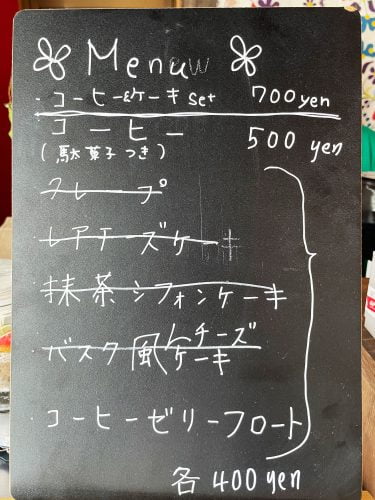 Menu
・コーヒー&ケーキ set 700yen
コーヒー 500 yen
(駄菓子つき)
クレープ
レアチーズケーキ
抹茶シフォンケーキ
バスク風チーズ
ケーキ
コーヒーゼリーフロート
各400yen